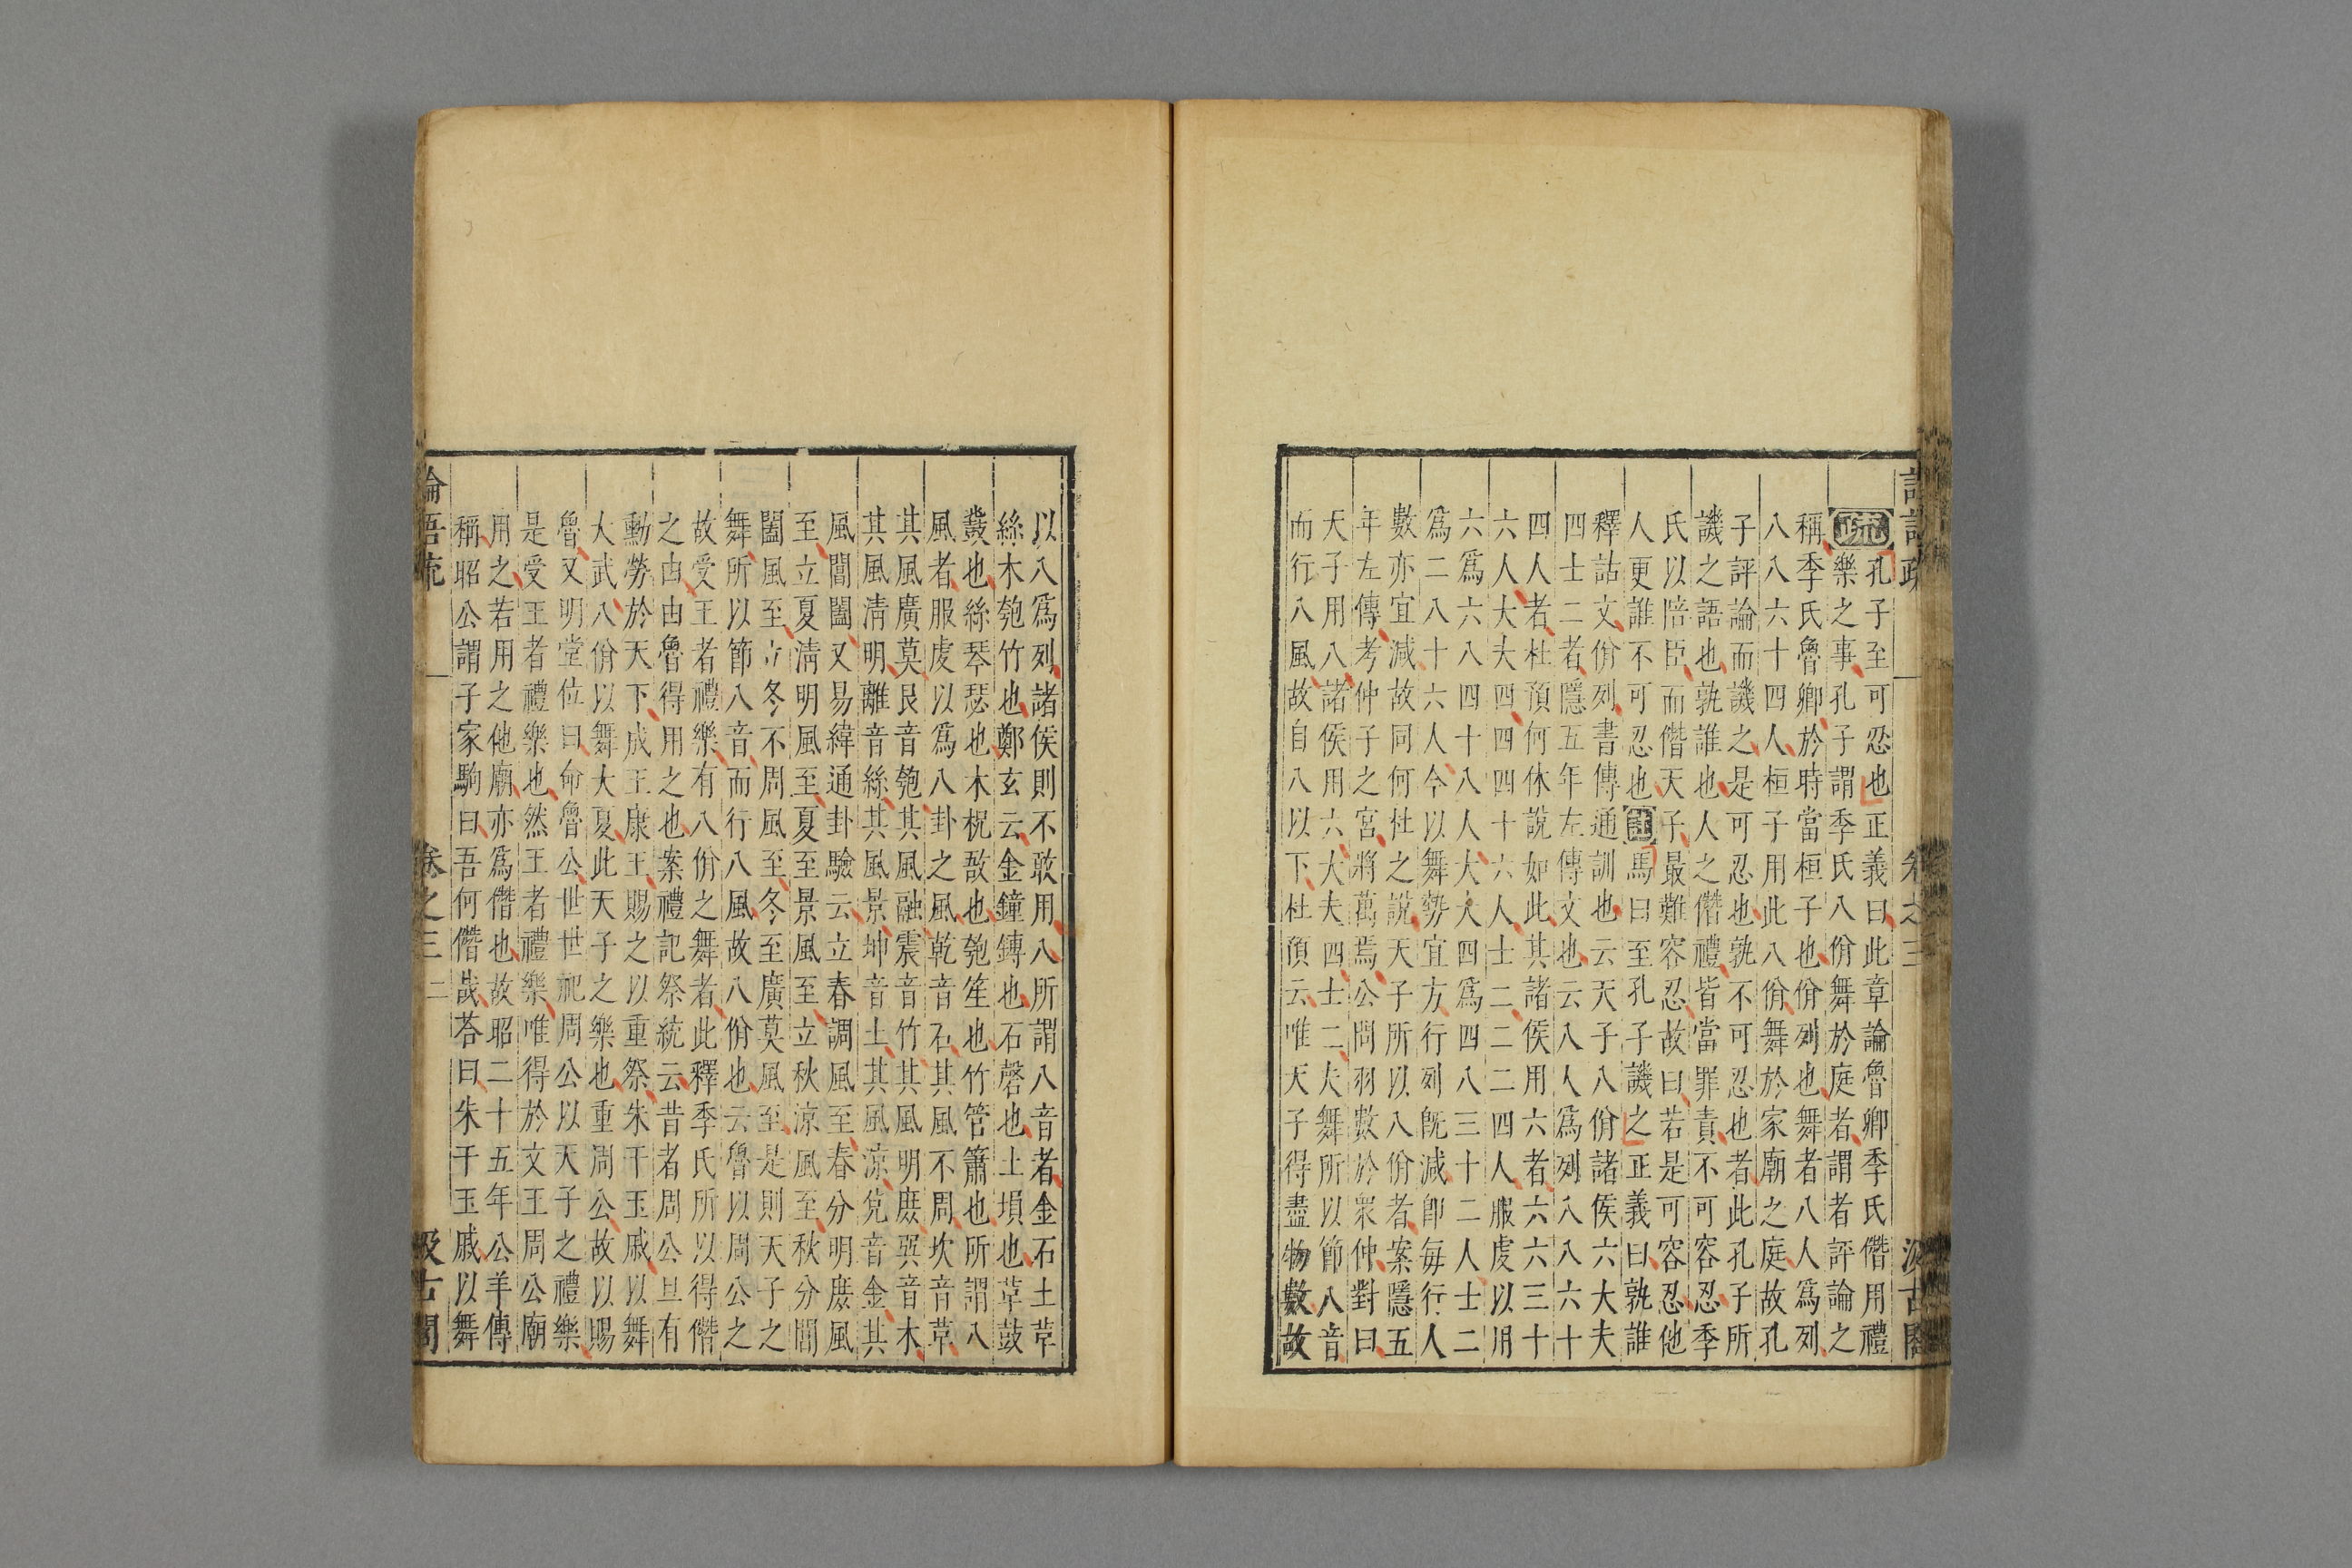 疏
孔子至可忍也正義曰此章論魯卿季氏僭用禮
樂之事孔子謂季氏八佾舞於庭者謂者評論之
稱季氏魯卿於時當桓子也佾列也舞者八人爲列
八八六十四人桓子用此八佾舞於家廟之庭故孔
子評論而譏之是可忍也孰不可忍也者此孔子所
譏之語也孰誰也人之僭禮皆當罪責不可容忍季
氏以陪臣而僭天子最難容忍故曰若是可容忍他
人更誰不可忍也註馬曰至孔子譏之正義曰孰誰
釋詁文佾列書傳通訓也云天子八佾諸侯六大夫
四士二者隱五年左傳文也云八人爲列八八六十
四人者杜預何休說如此其諸侯用六者六六三十
六人大夫四四四十六人士二二二四人服虔以用
六爲六八四十八人大夫四爲四八三十二人士二
爲二八十六人今以舞勢宜方行列既減卽每行人
數亦宜減故同何杜之說天子所以八佾者案隱五
年左傳考仲子之宮將萬焉公問羽數於衆仲對曰
天子用八諸侯用六大夫四士二夫舞所以節八音
而行八風故自八以下杜預云唯天子得盡物數故
以八爲列諸侯則不敢用八所謂八音者金石土革
絲木匏竹也鄭玄云金鐘鎛也石磬也土塤也革鼓
鼗也絲琴瑟也木柷敔也匏笙也竹管簫也所謂八
風者服虔以爲八卦之風乾音石其風不周坎音革
其風廣莫艮音匏其風融震音竹其風明庶巽音木
其風清明離音絲其風景坤音土其風涼兌音金其
風閶闔又易緯通卦驗云立春調風至春分明庶風
至立夏清明風至夏至景風至立秋涼風至秋分閶
闔風至立冬不周風至冬至廣莫風至是則天子之
舞所以節八音而行八風故八佾也云魯以周公之
故受王者禮樂有八佾之舞者此釋季氏所以得僭
之由由魯得用之也案禮記祭統云昔者周公旦有
勳勞於天下成王康王賜之以重祭朱干玉戚以舞
大武八佾以舞大夏此天子之樂也重周公故以賜
魯又明堂位曰命魯公世世祀周公以天子之禮樂
是受王者禮樂也然王者禮樂唯得於文王周公廟
用之若用之他廟亦爲僭也故昭二十五年公羊傳
稱昭公謂子家駒曰吾何僭哉荅曰朱干玉戚以舞
論語疏 卷之三 二 汲古閣